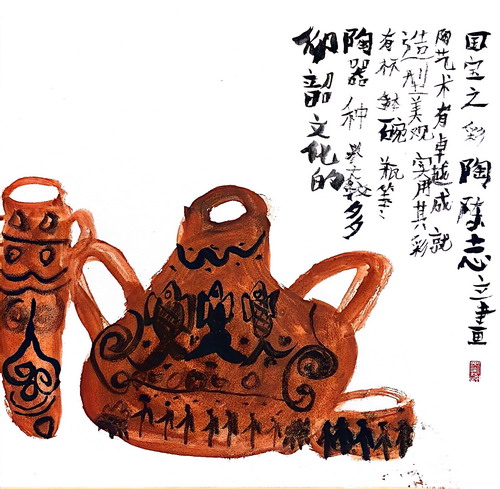 仰韶文化的
陶器种类大致多
有杯钵碗瓶等
造型美观实用其彩
陶艺术有卓越成就
国宝之彩陶陈志立画